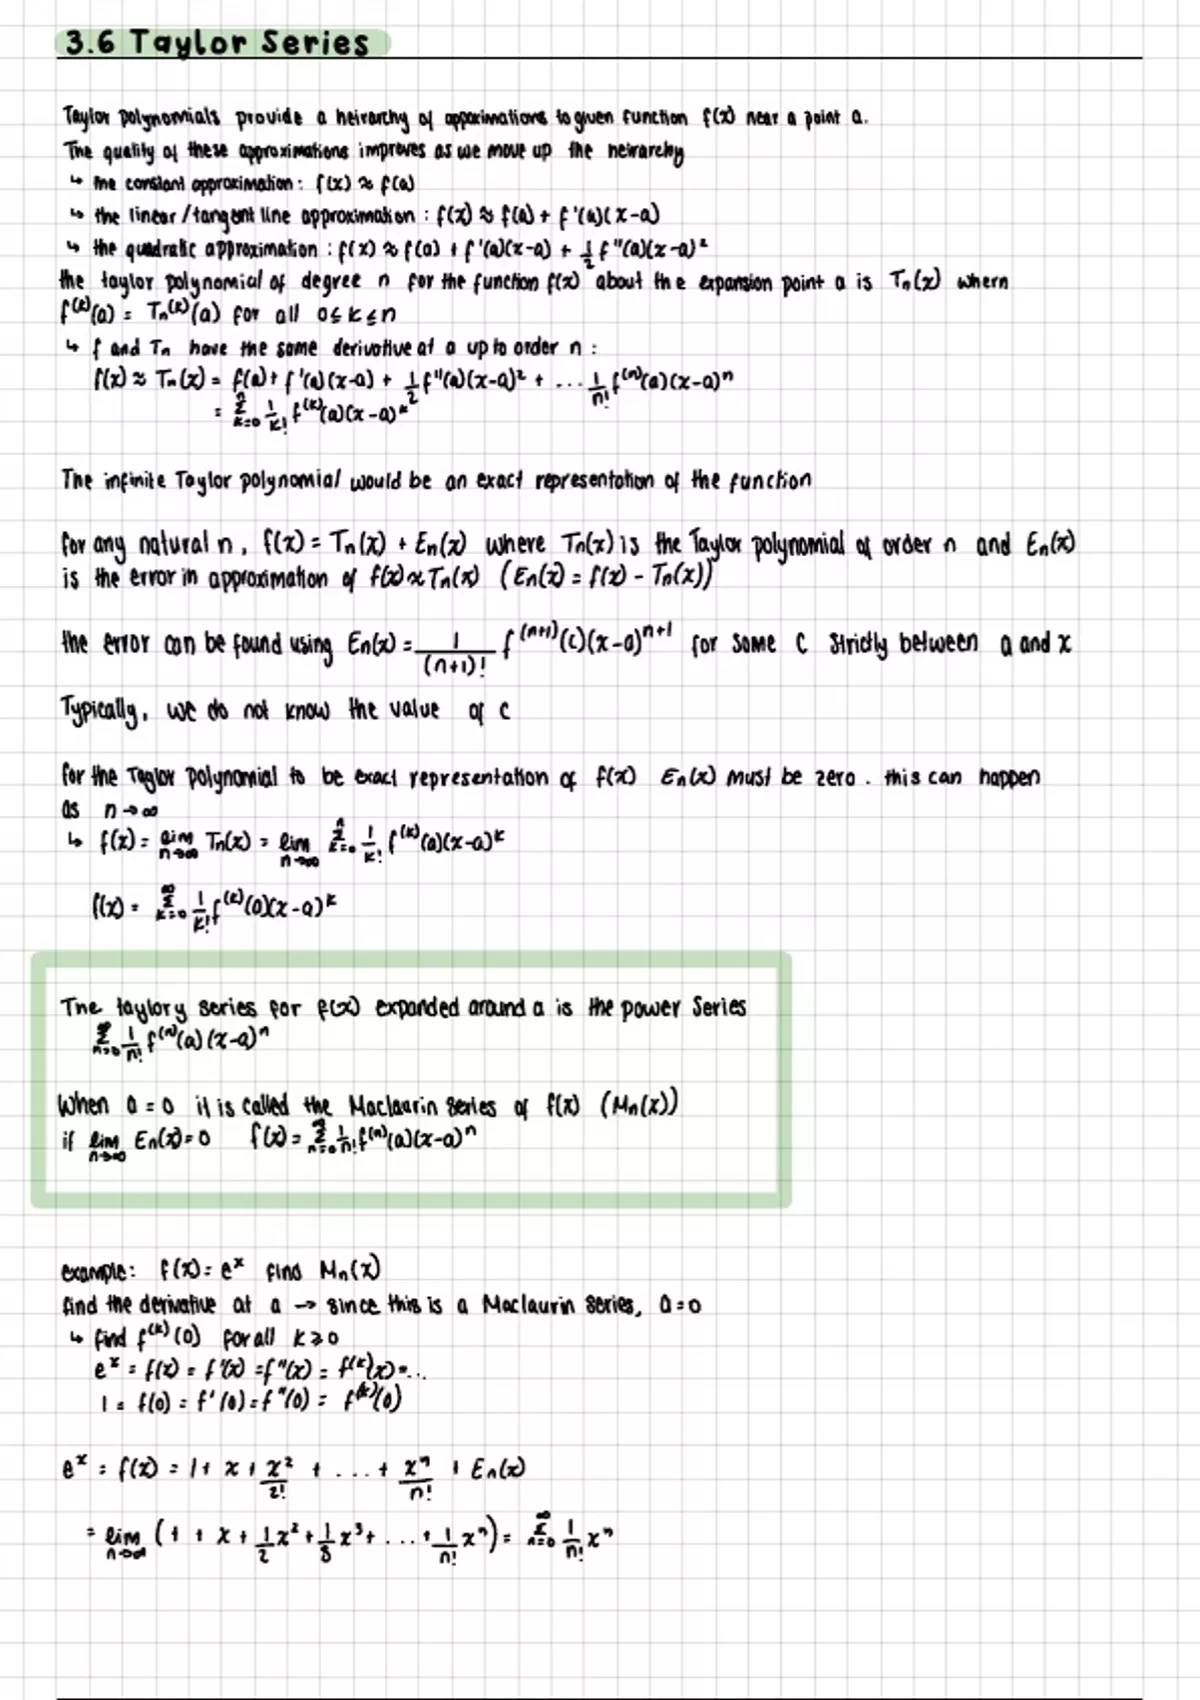 3.6 Taylor Series
Taylor polynomials provide a heirarchy of approximations to given function f(x) near a point a.
The quality of these approximations improves as we move up the heirarchy
↳ the constant approximation: f(x) ≈ f(a)
↳ the linear/tangent line approximation: f(x) ≈ f(a) + f'(a)(x-a)
↳ the quadratic approximation: f(x) ≈ f(a) + f'(a)(x-a) + 1/2 f"(a)(x-a)²
the taylor polynomial of degree n for the function f(x) about the expansion point a is Tₙ(x) whern
f⁽ᵏ⁾(a) = Tₙ⁽ᵏ⁾(a) for all 0≤k≤n
↳ f and Tₙ have the same derivative at a up to order n:
f(x) ≈ Tₙ(x) = f(a) + f'(a)(x-a) + 1/2 f"(a)(x-a)² + ... 1/n! f⁽ⁿ⁾(a)(x-a)ⁿ
= Σₖ₌₀ⁿ 1/k! f⁽ᵏ⁾(a)(x-a)ᵏ
The infinite Taylor polynomial would be an exact representation of the function
for any natural n, f(x) = Tₙ(x) + Eₙ(x) where Tₙ(x) is the Taylor polynomial of order n and Eₙ(x)
is the error in approximation of f(x) ≈ Tₙ(x) (Eₙ(x) = f(x) - Tₙ(x))
the error can be found using Eₙ(x) = 1/(n+1)! f⁽ⁿ⁺¹⁾(c)(x-a)ⁿ⁺¹ for some c strictly between a and x
Typically, we do not know the value of c
for the Taylor polynomial to be exact representation of f(x) Eₙ(x) must be zero. this can happen
as n→∞
↳ f(x) = lim n→∞ Tₙ(x) = lim n→∞ Σₖ₌₀ⁿ 1/k! f⁽ᵏ⁾(a)(x-a)ᵏ
f(x) = Σₖ₌₀^∞ 1/k! f⁽ᵏ⁾(a)(x-a)ᵏ
The taylory series for f(x) expanded around a is the power series
Σₙ₌₀^∞ 1/n! f⁽ⁿ⁾(a)(x-a)ⁿ
When a = 0 it is called the Maclaurin series of f(x) (Mₙ(x))
if lim n→∞ Eₙ(x) = 0 f(x) = Σₙ₌₀^∞ 1/n! f⁽ⁿ⁾(a)(x-a)ⁿ
example: f(x) = eˣ find Mₙ(x)
find the derivative at a → since this is a Maclaurin series, a=0
↳ find f⁽ᵏ⁾(0) for all k≥0
eˣ = f(x) = f'(x) = f"(x) = f⁽ᵏ⁾(x) = ...
1 = f(0) = f'(0) = f"(0) = f⁽ᵏ⁾(0)
eˣ = f(x) = 1 + x + x²/2! + ... + xⁿ/n! + Eₙ(x)
= lim n→∞ (1 + x + 1/2 x² + 1/8 x³ + ... + 1/n! xⁿ) = Σₙ₌₀^∞ 1/n! xⁿ